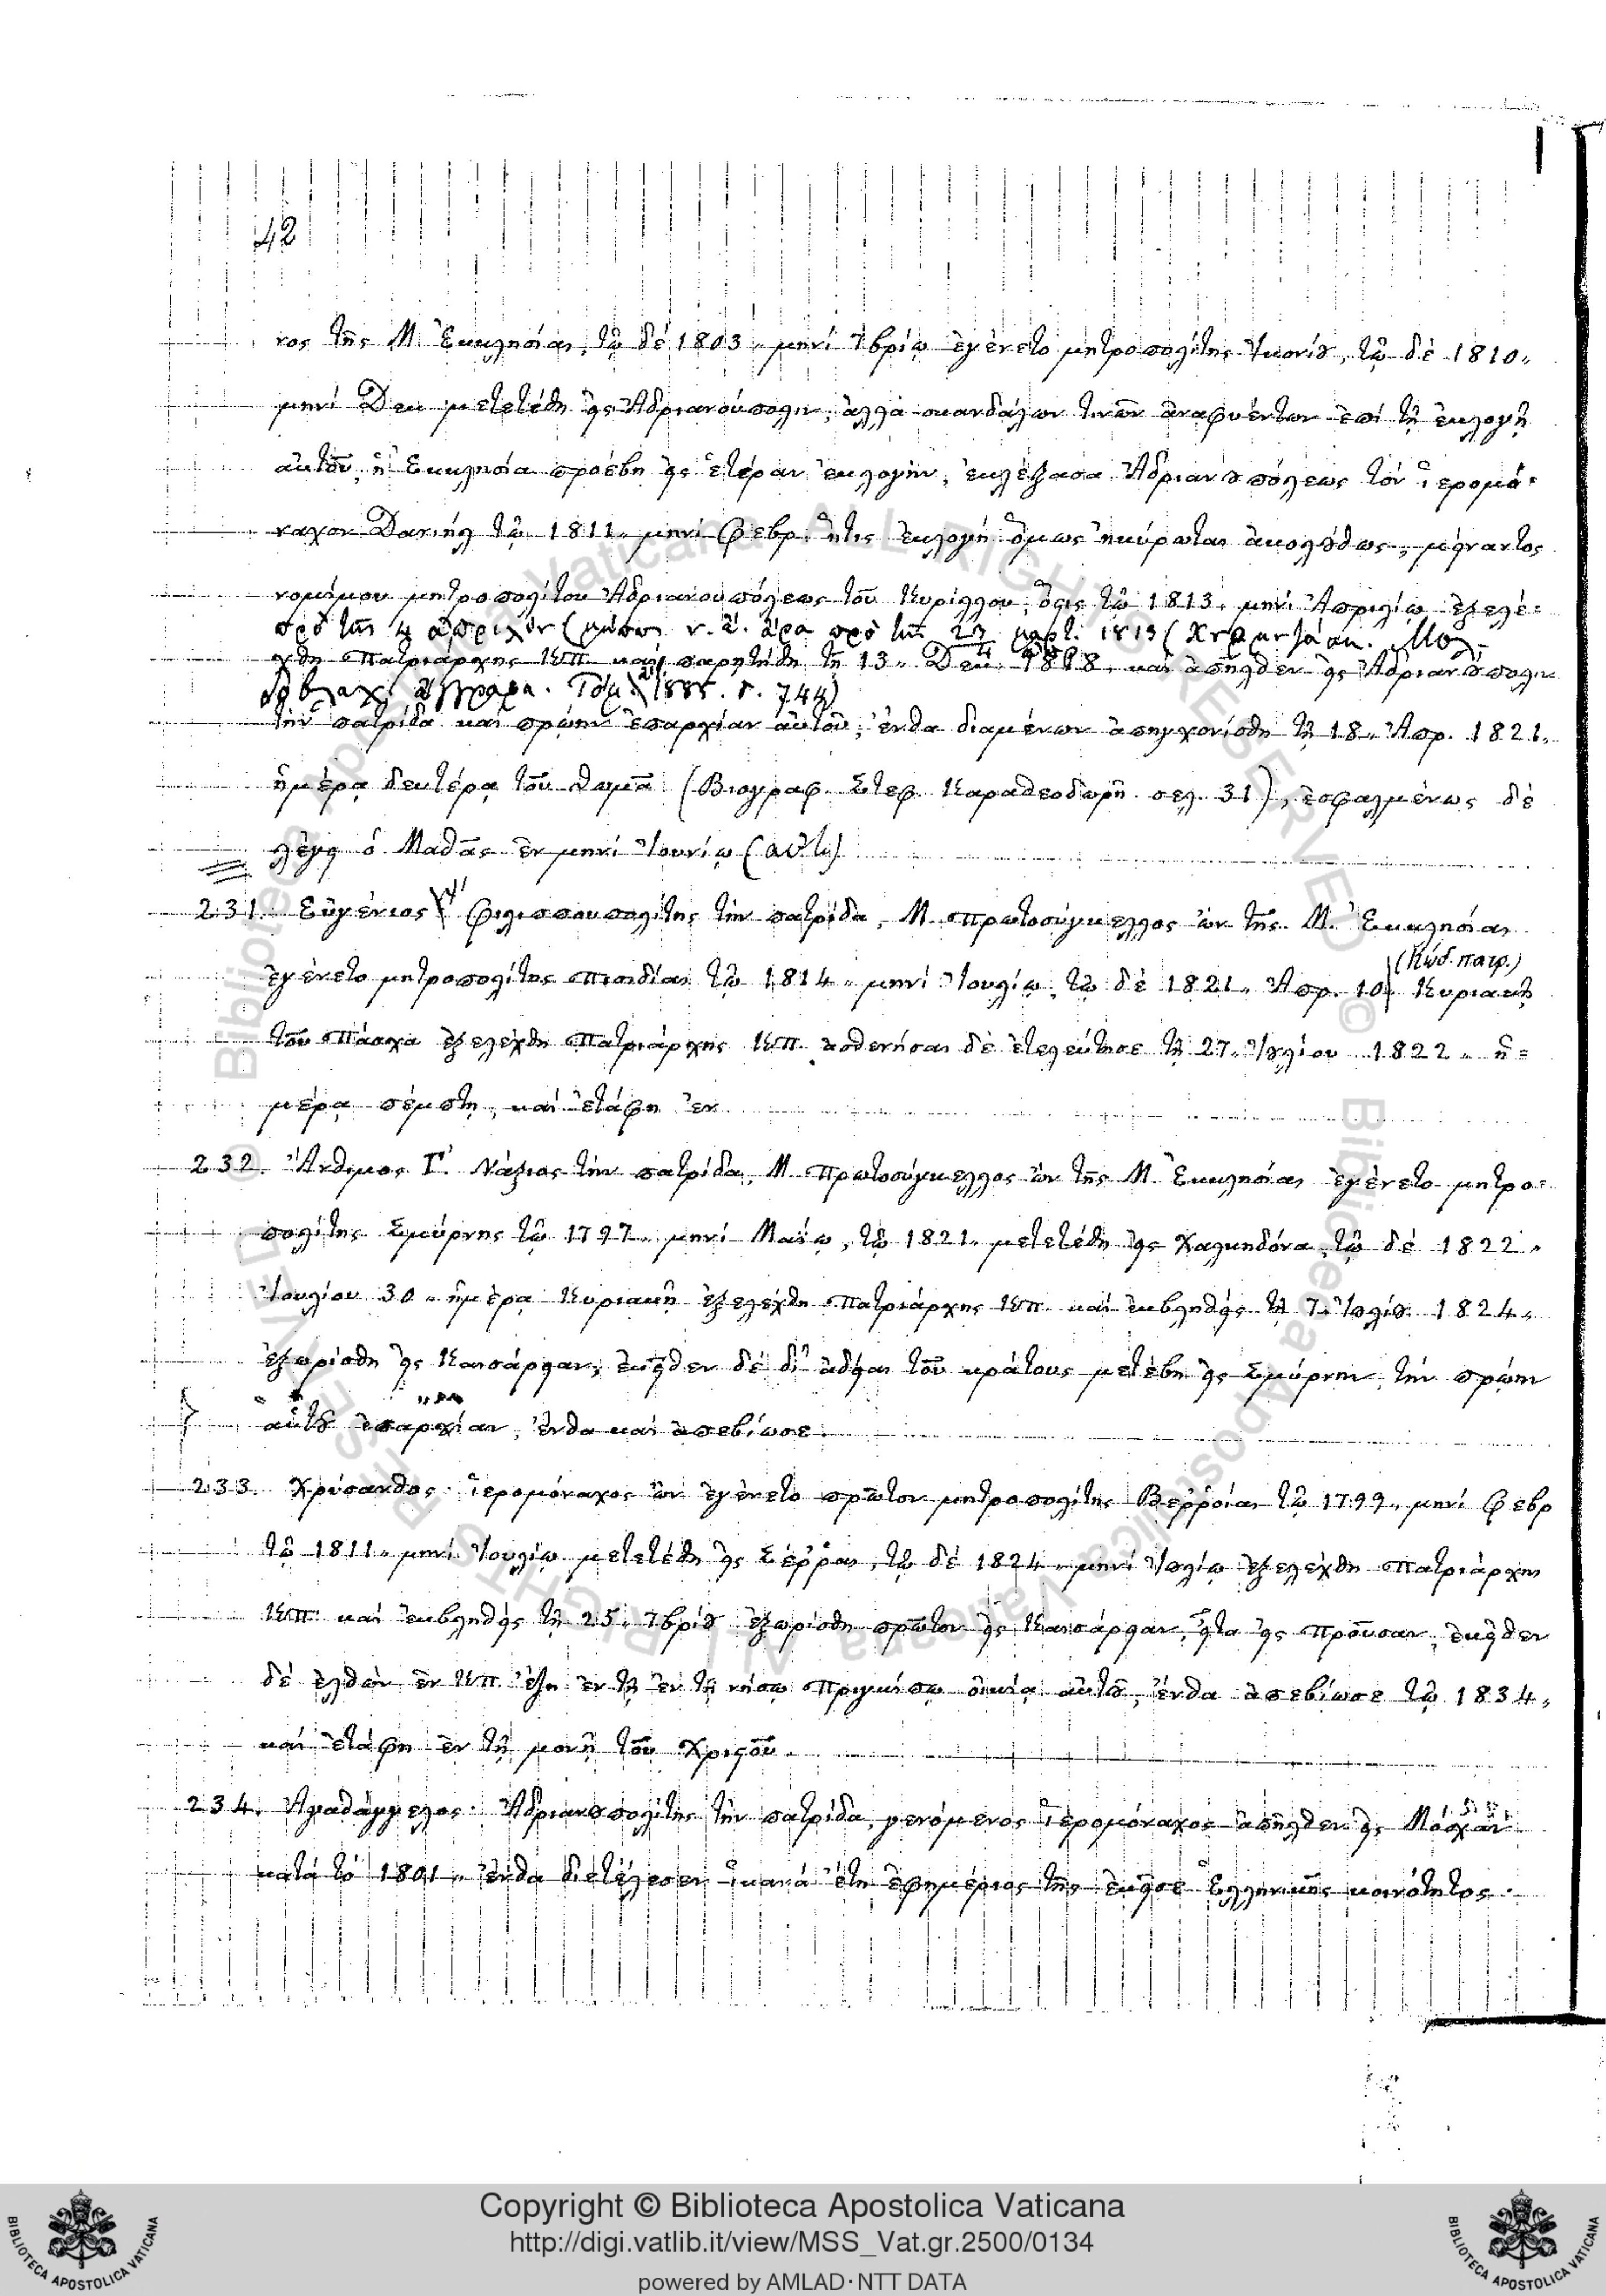 42
νος τῆς Μ. Ἐκκλησίας, τῷ δέ 1803, μηνί 7βρίῳ ἐγένετο μητροπολίτης Ἰκονίȣ, τῷ δέ 1810,
μηνί Δεκ μετετέθη εἰς Ἀδριανούπολιν, ἀλλά σκανδάλων τινῶν ἀναφυέντων ἐπί τῇ ἐκλογῇ
αὐτοῦ, ἡ Ἐκκλησία προέβη εἰς ἑτέραν ἐκλογήν, ἐκλέξασα Ἀδριανȣπόλεως τόν ἱερομό=
ναχον Δανιήλ τῷ 1811, μηνί Φεβρ. ἥτις ἐκλογή ὅμως ἠκύρωται ἀκολȣ́θως, μείναντος
νομίμου μητροπολίτου Ἀδριανουπόλεως τοῦ Κυρίλλου, ὅστις τῷ 1813, μηνί Ἀπριλίῳ ἐξελέ=
πρό τῆς 4 ἀπριλίου ν. ἄρα πρό τῆς 23 μαρτ. 1813
χθη Πατριάρχης ΚΠ. καί παρητήθη τῇ 13, Δεκ. 1818, καί ἀπῆλθεν εἰς Ἀδριανȣ́πολιν
ἔγγραφα. Τόμ. 744)
τήν πατρίδα καί πρώην ἐπαρχίαν αὐτοῦ, ἔνθα διαμένων ἀπηγχονίσθη τῇ 18, Ἀπρ. 1821,
ἡμέρᾳ δευτέρᾳ τοῦ Θωμᾶ (Βιογραφ. Στεφ. Καραθεοδωρῆ σελ. 31), ἐσφαλμένως δέ
λέγει ὁ Μαθᾶς ἐν μηνί Ἰουνίῳ
231. Εὐγένιος Φιλιππουπολίτης τήν πατρίδα, Μ. Πρωτοσύγκελλος ὤν τῆς Μ. Ἐκκλησίας
(Κώδ. πατρ.)
ἐγένετο μητροπολίτης Πισιδίας τῷ 1814, μηνί Ἰουλίῳ, τῷ δέ 1821, Ἀπρ. 10, Κυριακῇ
τοῦ Πάσχα ἐξελέχθη Πατριάρχης ΚΠ. ἀσθενήσας δέ ἐτελεύτησε τῇ 27, Ἰȣλίου 1822, ἡ=
μέρᾳ πέμπτῃ, καί ἐτάφη ἐν
232. Ἄνθιμος Γ΄. Νάξιος τήν πατρίδα, Μ. Πρωτοσύγκελλος ὤν τῆς Μ. Ἐκκλησίας ἐγένετο μητρο=
πολίτης Σμύρνης τῷ 1797, μηνί Μαΐῳ, τῷ 1821, μετετέθη εἰς Χαλκηδόνα, τῷ δέ 1822,
Ἰουλίου 30, ἡμέρᾳ Κυριακῇ ἐξελέχθη Πατριάρχης ΚΠ. καί ἐκβληθείς τῇ 7, Ἰȣλίȣ 1824,
ἐξωρίσθη εἰς Καισάρειαν, ἐκεῖθεν δέ δι' ἀδείας τοῦ κράτους μετέβη εἰς Σμύρνην, τήν πρώην
αὐτȣ͂ ἐπαρχίαν, ἔνθα καί ἀπεβίωσε.
233. Χρύσανθος. ἱερομόναχος ὤν ἐγένετο πρῶτον μητροπολίτης Βερῥοίας τῷ 1799, μηνί Φεβρ
τῷ 1811, μηνί Ἰουλίῳ μετετέθη εἰς Σέῤῥας, τῷ δέ 1824, μηνί Ἰȣλίῳ ἐξελέχθη Πατριάρχης
ΚΠ. καί ἐκβληθείς τῇ 25, 7βρίȣ ἐξωρίσθη πρῶτον εἰς Καισάρειαν, εἶτα εἰς Προῦσαν, ἐκεῖθεν
δέ ἐλθών ἐν ΚΠ. ἔζη ἐν τῇ ἐν τῇ νήσῳ Πριγκίπῳ οἰκίᾳ αὐτȣ͂, ἔνθα ἀπεβίωσε τῷ 1834,
καί ἐτάφη ἐν τῇ μονῇ τοῦ Χριστοῦ.
234. Ἀγαθάγγελος. Ἀδριανȣπολίτης τήν πατρίδα, γενόμενος ἱερομόναχος ἀπῆλθεν εἰς Μόσχαν
κατά τό 1801, ἔνθα διετέλεσεν ἱκανά ἔτη ἐφημέριος τῆς ἐκεῖσε Ἑλληνικῆς κοινότητος.
Copyright © Biblioteca Apostolica Vaticana
http://digi.vatlib.it/view/MSS_Vat.gr.2500/0134
powered by AMLAD·NTT DATA